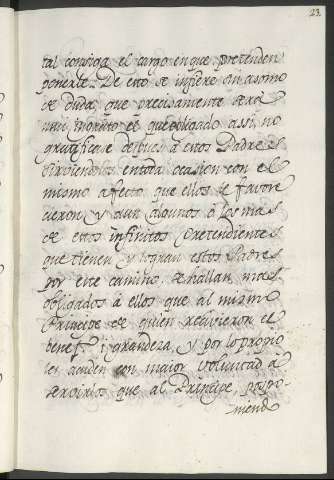 23
tal consiga el cargo en que pretenden
ponerle. De esto se infiere sin asomo
de duda, que precisamente será
mui ingrato el que obligado assi, no
gratificase despues à estos Padres
sirviendolos en toda ocasion con el
mismo affecto que ellos le favore
cieron, y aun algunos ò los mas
de estos infinitos Pretendientes
que tienen, y logran estos Padres
por este camino, se hallan mas
obligados à ellos que al mismo
Principe de quien recivieron el
benefi i grandeza, y por lo propio
les acuden con maior voluntad a
servirlos que al Principe, pospo
niend